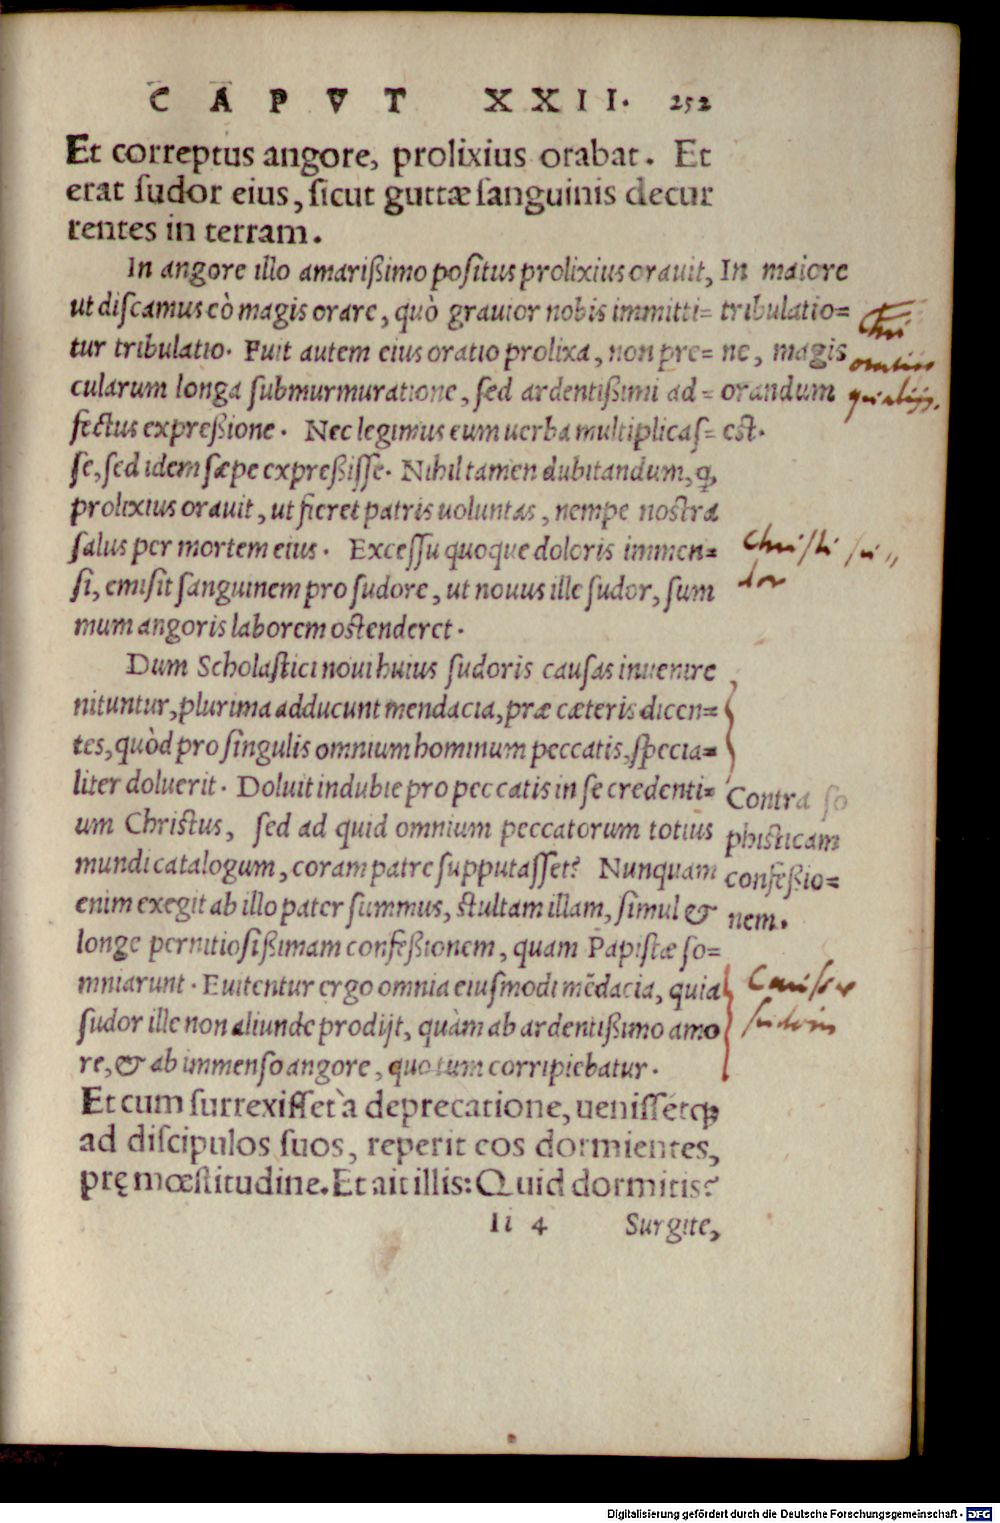 CAPVT XXII. 252
Et correptus angore, prolixius orabat. Et
erat ſudor eius, ſicut guttæ ſanguinis decur
rentes in terram.
In angore illo amarißimo poſitus prolixius orauit,
ut diſcamus eò magis orare, quò grauior nobis immitti=
tur tribulatio. Fuit autem eius oratio prolixa, non pre=
cularum longa ſubmurmuratione, ſed ardentißimi ad=
fectus expreßione. Nec legimus eum uerba multiplicaſ=
ſe, ſed idem ſæpe expreßiſſe. Nihil tamen dubitandum, ꝙ
prolixius orauit, ut fieret patris uoluntas, nempe noſtra
ſalus per mortem eius. Exceſſu quoque doloris immen=
ſi, emiſit ſanguinem pro ſudore, ut nouus ille ſudor, ſum
mum angoris laborem oſtenderet.
In maiore
tribulatio=
ne, magis
orandum
eſt.
Chri
oratius
qualis.
Chriſti ſu"
dor
Dum Scholaſtici noui huius ſudoris cauſas inuenire
nituntur, plurima adducunt mendacia, præ cæteris dicen=
tes, quòd pro ſingulis omnium hominum peccatis, ſpecia=
liter doluerit. Doluit indubie pro peccatis in ſe credenti=
um Chriſtus, ſed ad quid omnium peccatorum totius
mundi catalogum, coram patre ſupputaſſet? Nunquam
enim exegit ab illo pater ſummus, ſtultam illam, ſimul &
longe pernitioſißimam confeßionem, quam Papiſtæ ſo=
mniarunt. Euitentur ergo omnia eiuſmodi mẽdacia, quia
ſudor ille non aliunde prodijt, quàm ab ardentißimo amo
re, & ab immenſo angore, quo tum corripiebatur.
Contra ſo
phiſticam
confeßio=
nem.
Cauſae
ſudoris
Et cum ſurrexiſſet à deprecatione, ueniſſetq́ꝫ
ad diſcipulos ſuos, reperit eos dormientes,
prę mœſtitudine. Et ait illis: Quid dormitis?
Ii 4 Surgite,
Digitalisierung gefördert durch die Deutsche Forschungsgemeinschaft - DFG